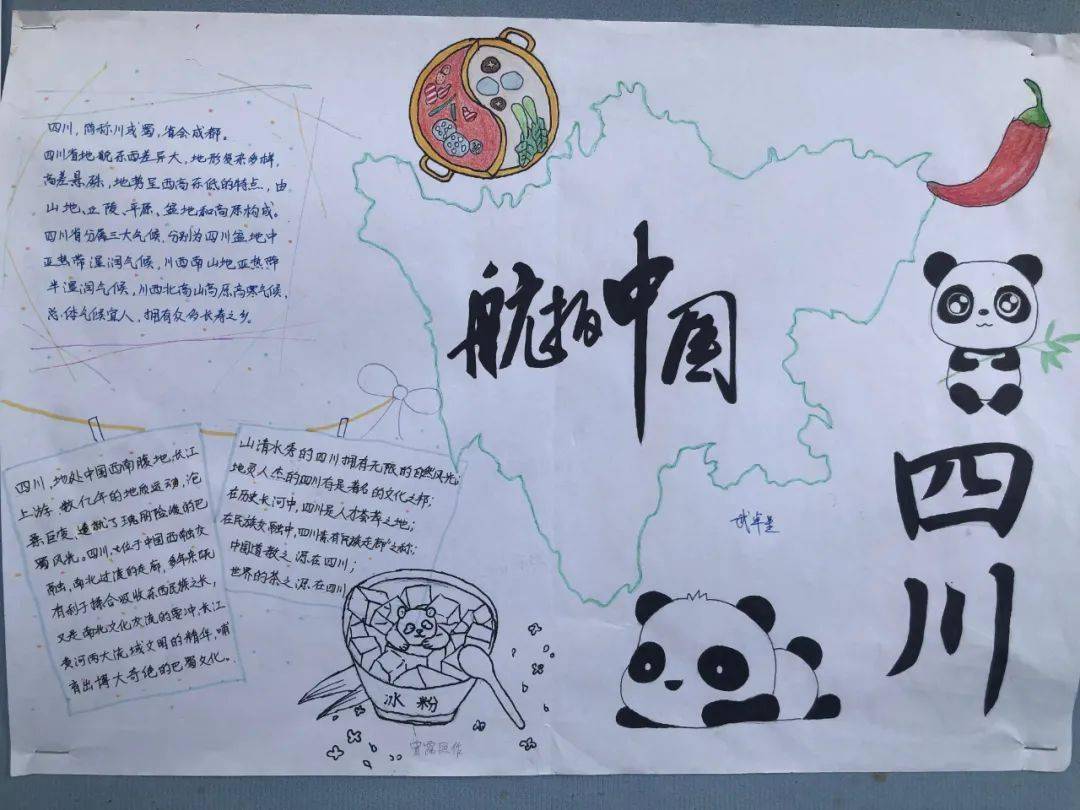 四川，简称川或蜀，省会成都。
四川省地貌东西差异大，地形复杂多样，
高差悬殊，地势呈西高东低的特点，由
山地、丘陵、平原、盆地和高原构成。
四川省分属三大气候，分别为四川盆地中
亚热带湿润气候，川西南山地亚热带
半湿润气候，川西北高山高原高寒气候，
总体气候宜人，拥有众多长寿之乡。
航拍中国
四川
四川，地处中国西南腹地，长江
上游，数亿年的地质运动，沧
桑巨变，造就了瑰丽险峻的巴
蜀风光。四川，位于中国西融汉
南北过渡的走廊，多年来既
有利于揉合吸收东西民族之长，
又是南北文化交流的要冲，长江
黄河两大流域文明的精华，哺
育出博大奇绝的巴蜀文化。
山清水秀的四川拥有无限的自然风光；
地灵人杰的四川有是著名的文化之邦；
在历史长河中，四川是人才荟萃之地；
在民族交融中，四川素有民族走廊”之称；
中国道教之源在四川；
世界的茶之源在四川
冰粉